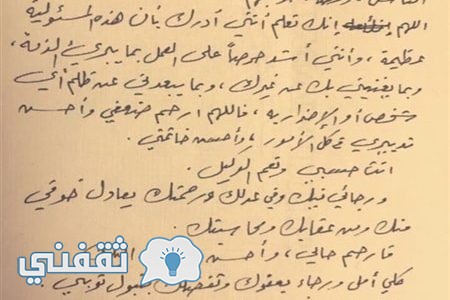 اللهم إنك تعلم أنني أدرك بأن هذه المسئولية
عظيمة، وأنني أشد حرصاً على العمل بما يبرئ الذمة،
وبما يغنيني بك عن غيرك، وبما يبعدني عن ظلم أي
شخص أو الإضرار به، فاللهم ارحم ضعفي وأحسن
تدبيري في كل الأمور، وأحسن خاتمتي.
أنت حسبي ونعم الوكيل.
ورجائي فيك وفي عدلك ورحمتك يعادل خوفي
منك ومن عقابك ومحاسبتك.
فارحم حالي، وأحسن
كلي أمل ورجاء بعفوك وتفضلك بقبول توبتي
ثقفني